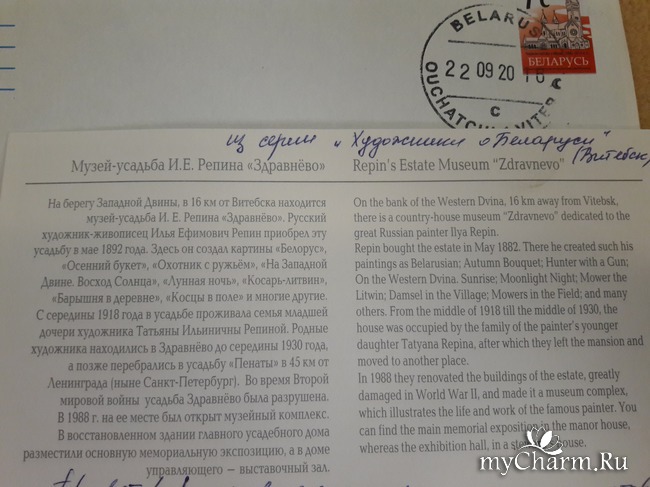 BELARUS
22 09 20 16
c
OUCHATCH
БЕЛАРУСЬ
из серии "Художники о Беларуси"
(Витебск)
Музей-усадьба И.Е. Репина «Здравнёво»
На берегу Западной Двины, в 16 км от Витебска находится
музей-усадьба И. Е. Репина «Здравнёво». Русский
художник-живописец Илья Ефимович Репин приобрел эту
усадьбу в мае 1892 года. Здесь он создал картины «Белорус»,
«Осенний букет», «Охотник с ружьём», «На Западной
Двине. Восход Солнца», «Лунная ночь», «Косарь-литвин»,
«Барышня в деревне», «Косцы в поле» и многие другие.
С середины 1918 года в усадьбе проживала семья младшей
дочери художника Татьяны Ильиничны Репиной. Родные
художника находились в Здравнёво до середины 1930 года,
а позже перебрались в усадьбу «Пенаты» в 45 км от
Ленинграда (ныне Санкт-Петербург). Во время Второй
мировой войны усадьба Здравнёво была разрушена.
В 1988 г. на ее месте был открыт музейный комплекс.
В восстановленном здании главного усадебного дома
разместили основную мемориальную экспозицию, а в доме
управляющего — выставочный зал.
Repin's Estate Museum "Zdravnevo"
On the bank of the Western Dvina, 16 km away from Vitebsk,
there is a country-house museum "Zdravnevo" dedicated to the
great Russian painter Ilya Repin.
Repin bought the estate in May 1882. There he created such
paintings as Belarusian; Autumn Bouquet; Hunter with a Gun;
On the Western Dvina. Sunrise; Moonlight Night; Mower the
Litwin; Damsel in the Village; Mowers in the Field; and many
others. From the middle of 1918 till the middle of 1930, the
house was occupied by the family of the painter's younger
daughter Tatyana Repina, after which they left the mansion and
moved to another place.
In 1988 they renovated the buildings of the estate, greatly
damaged in World War II, and made it a museum complex,
which illustrates the life and work of the famous painter. You
can find the main memorial exposition in the manor house,
whereas the exhibition hall, in a house.
myCharm.Ru